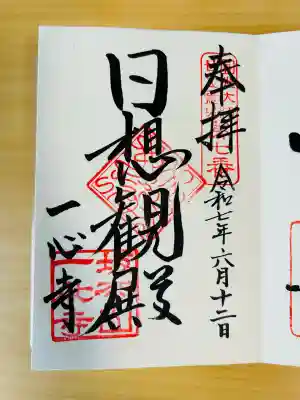 奉拝
令和七年六月十二日
日想観殿
一心寺